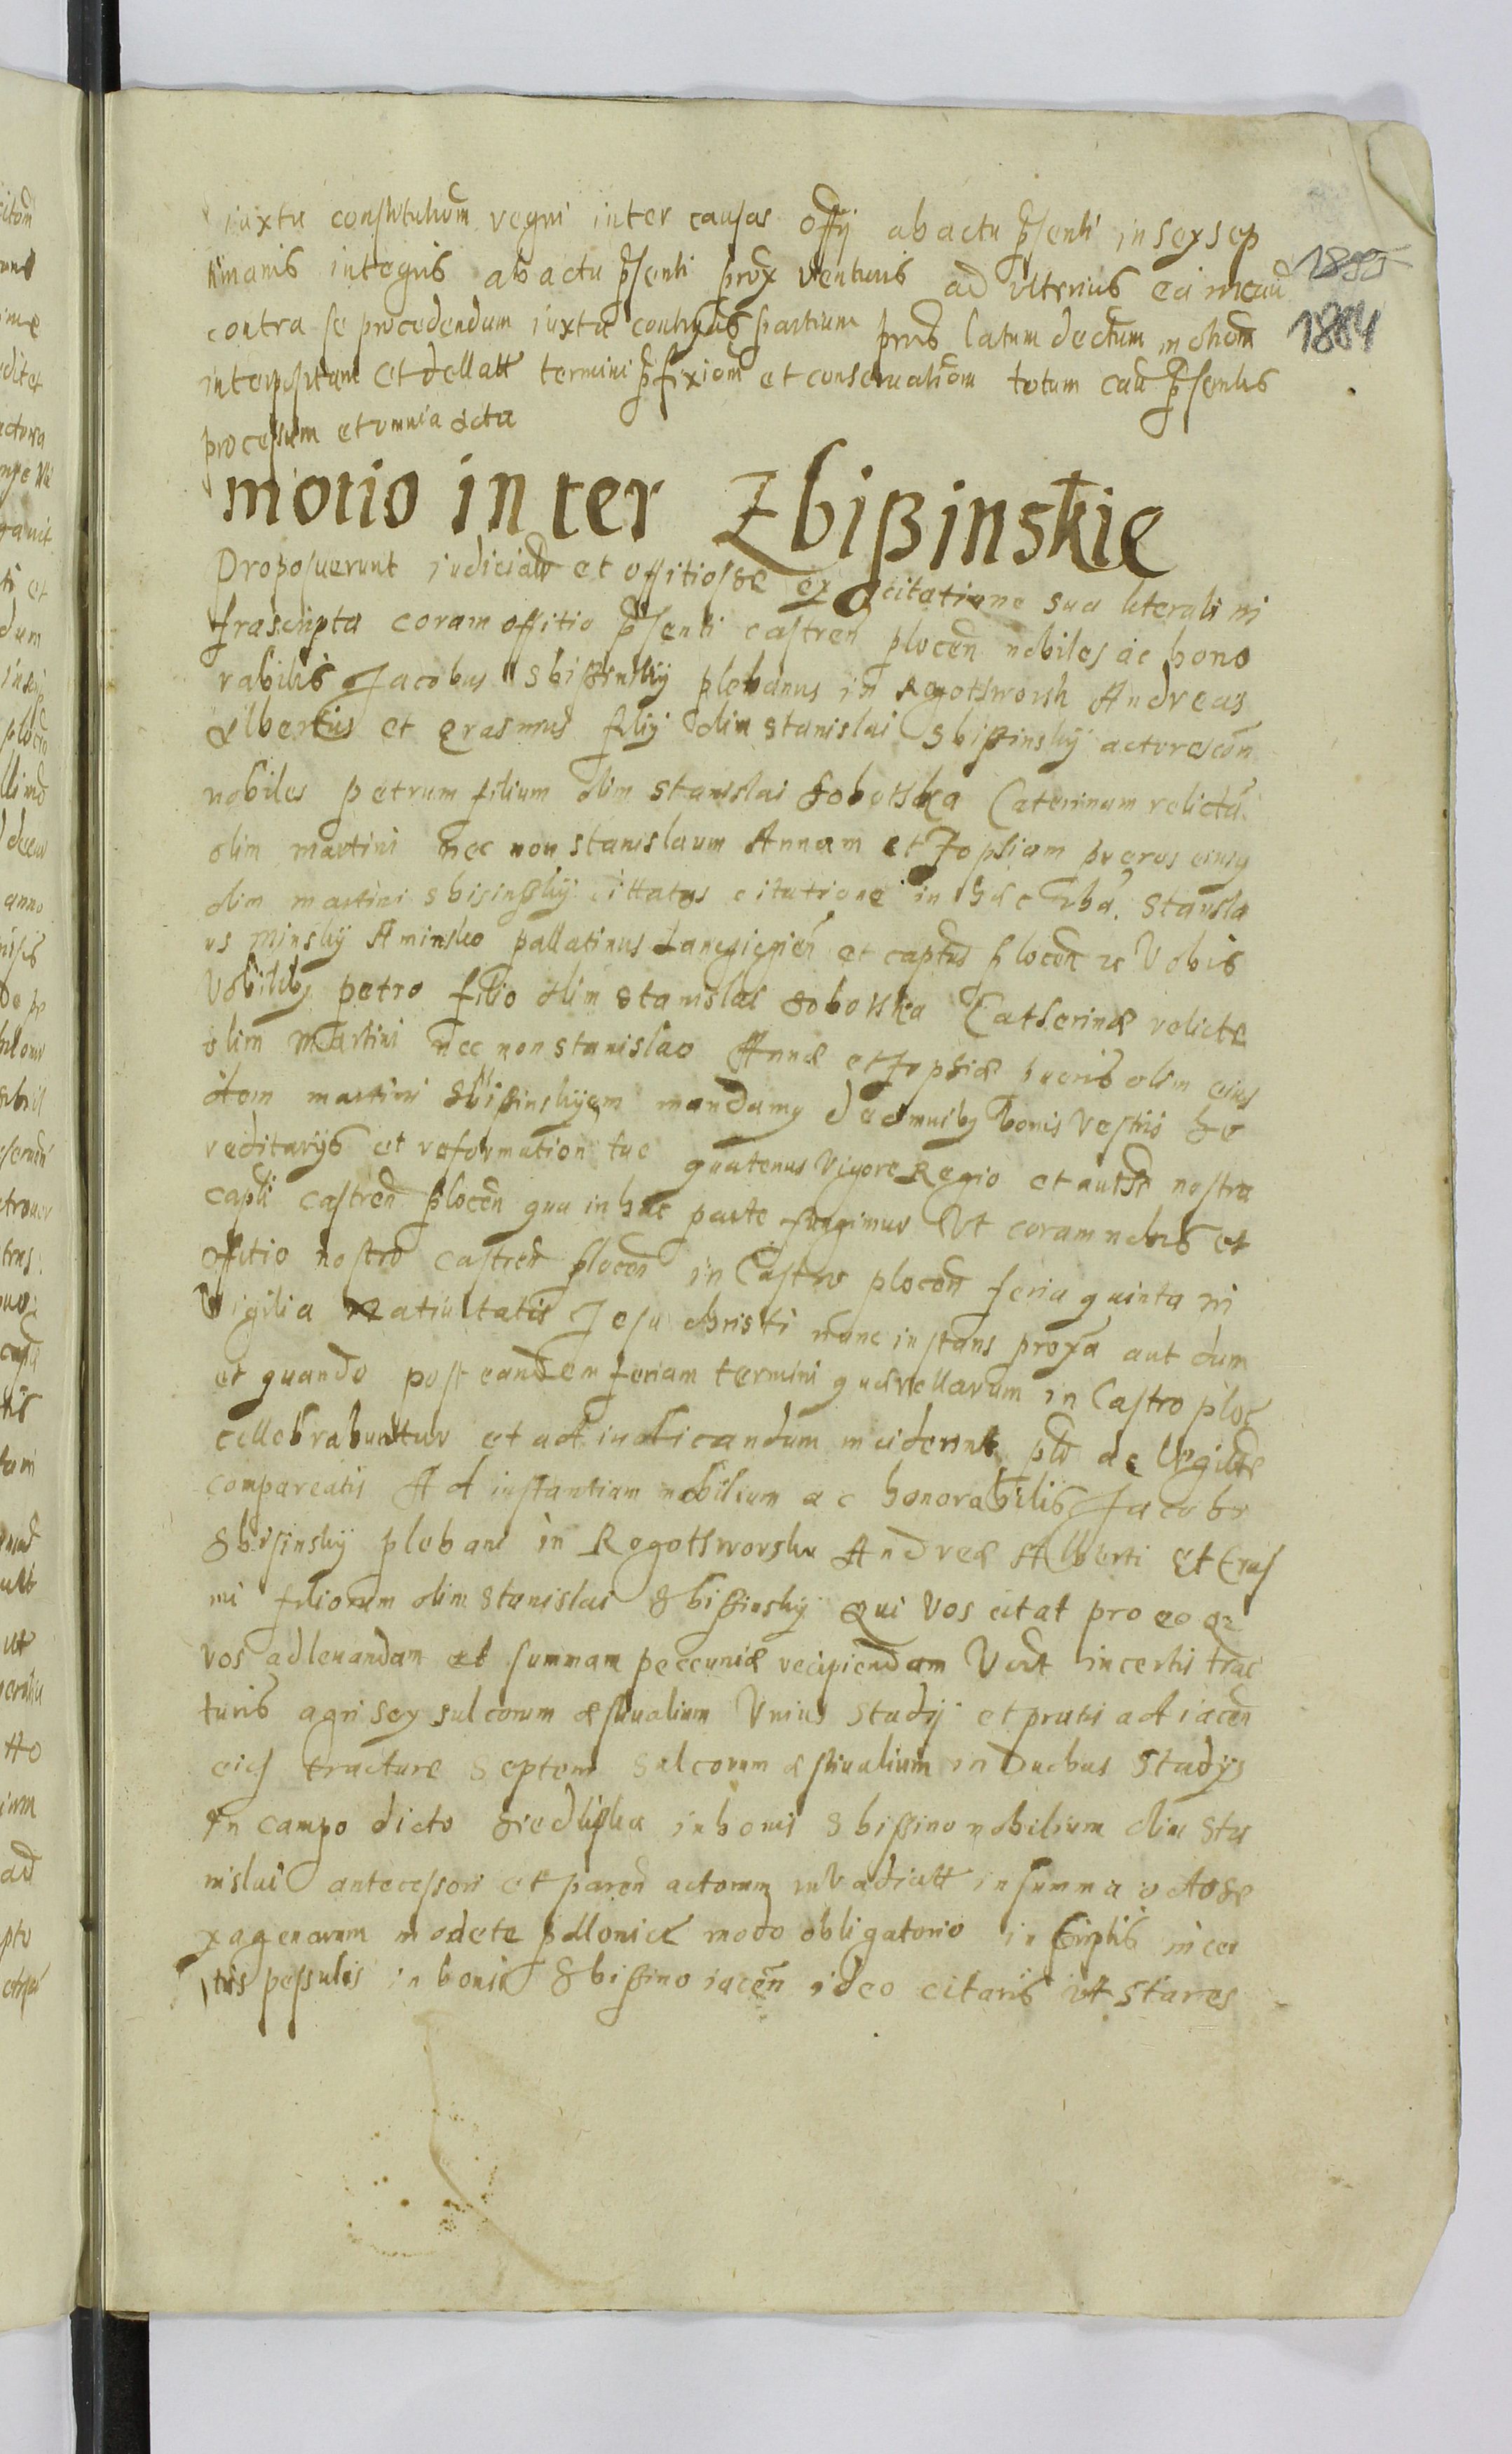 iuxta constitutiom regni inter causas offy ab actu psenti in sex sep
timanis integris ab actu psenti prox venturis ad vlterius ea in cau
contra se procedendum iuxta partium prius latum dectum
interpositum et dellatt termini pfixiom et conseruatiom totum cau psentis
processum et omnia acta
motio inter Zbißinskie
Proposuerunt iudicialr et offitiosae ex citatione sua literali in
frascripta coram offitio psenti castren plocen nobiles ac hono
rabilis Jacobus Sbißinskÿ plebanus in Regotsworsk Andreas
Albertus et erasmus filÿ olim Stanislai Sbißinskÿ actores con
nobiles petrum filium olim Stanislai Sobotska Caterinam relicta
olim martini nec non Stanislaum Annam et Zophiam pueros
olim martini Sbisinskÿ citatos citatione in hac vba. Stanisla
us Minskÿ A minsko pallatinus Lancicien et captus plocen Vobis
Nobilibus petro filio olim Stanislai Sobotska Catherinæ relicte
olim Martini nec non Stanislao Annæ et Zophiæ pueris olim eius
dem martini Sbißinskÿ mandamus de omnibus bonis vestris he
reditarÿs et reformation tue quatenus vigore Regio et autht nostra
capli castren plocen qua in hac parte fungimur Vt coram nobis et
offitio nostro castren plocen in Castro plocen feria quinta in
Vigilia Natiuitatis Jesu christi nunc instans proxa aut dum
et quando post eandem feriam termini querellarum in Castro ploc
cellebrabuntur et ad iudicandum inciderint plr ac legitte
compareatis Ad instantiam nobilium ac honorabilis Jacobi
Sbisinskÿ plebani in Regotsworsku Andreæ Alberti et Eras
mi filiorum olim Stanislai Sbißinskÿ Qui vos citat pro eo qz
vos ad leuandam et summam peccuniæ recipiendam Vidt in certis trac
turis agri sex sulcorum æstiualium Vnius Stadÿ et prati adiacen
eids tracture Septem Sulcorum æstiualium in Duobus Stadÿs
In campo dicto Siedliska in bonis Sbißino nobilium olim Sta
nislai antecessori et paren actorum invadiatt in summa octo se
xagenarum monete pollonicæ modo obligatorio in scriptis in cer
tis pessulis in bonis Sbißino iacen ideo citaris vt Stares
1885
1884